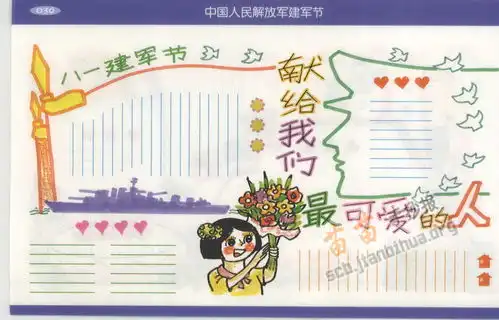 030
中国人民解放军建军节
八一建军节
献给我们
最可爱的人
scb.jianbihua.org